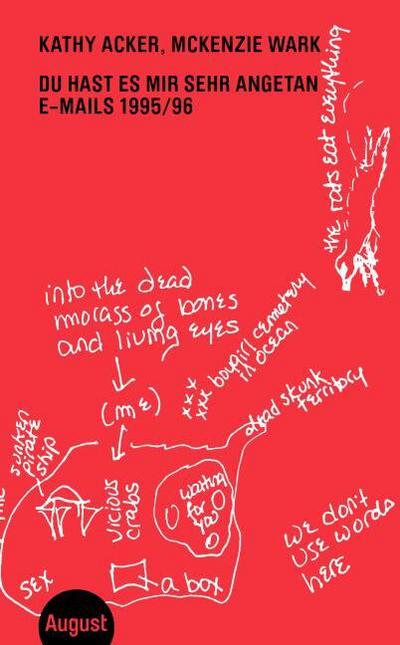 KATHY ACKER, MCKENZIE WARK
DU HAST ES MIR SEHR ANGETAN
E-MAILS 1995/96
the rats eat everything
into the dead
morass of bones
and living eyes
(me)
xxx boygirl cemetery
xxx in ocean
dead skunk
territory
sunken
pirate
ship
vicious
crabs
waiting
for
you
we don't
use words
here
sex
a box
August